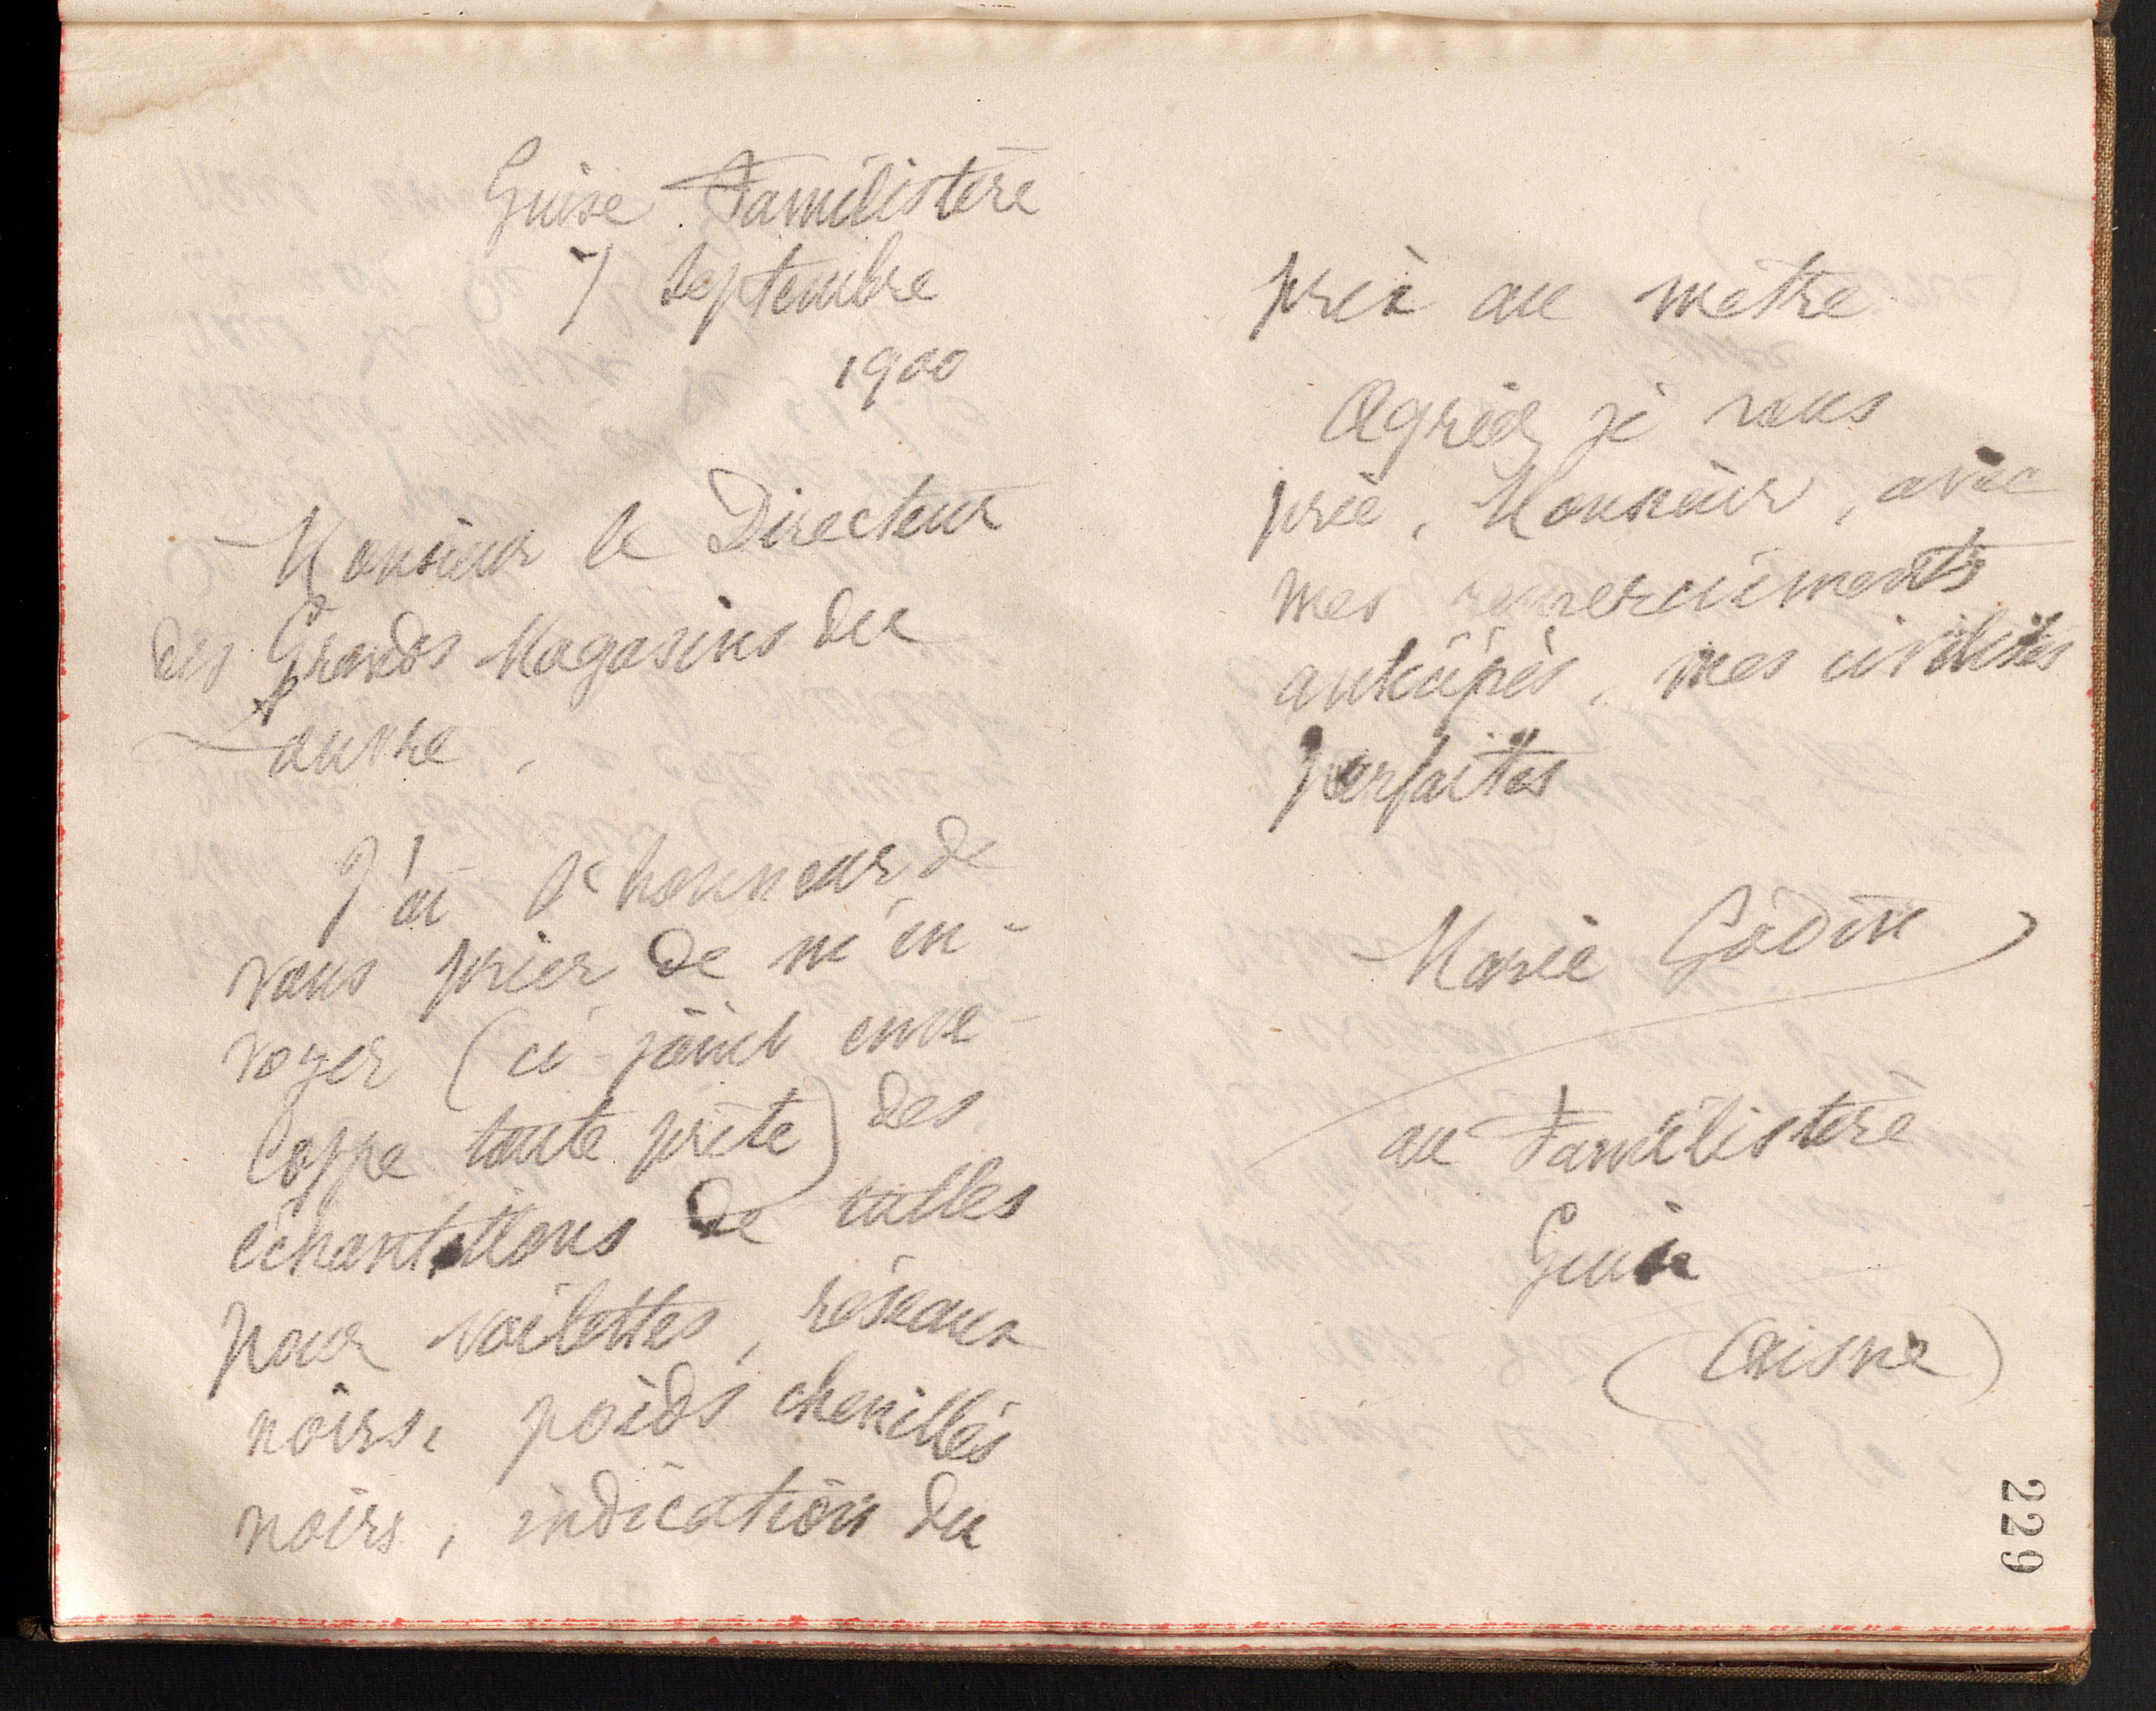 Guise Familistère
7 septembre
1900
Monsieur le Directeur
des Grands Magasins du
Louvre,
J'ai l'honneur de
vous prier de m'en-
voyer (ci-joint enve-
loppe toute prête) des
échantillons de tulles
pour voilettes, réseaux
noirs, poids chenillés
noirs, indication du
prix au mètre
Agréez je vous
prie, Monsieur, avec
mes remerciements
anticipés, mes civilités
parfaites
Marie Godin
au Familistère
Guise
(Aisne)
229